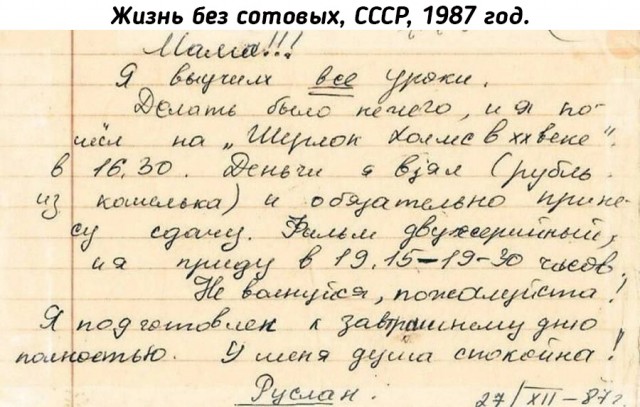 Жизнь без сотовых, СССР, 1987 год.
Мама!!!
Я выучил все уроки.
Делать было нечего, и я по-
шёл на „Шерлок Холмс в XX веке"
в 16.30. Деньги я взял (рубль
из кошелька) и обязательно прине-
су сдачу. Фильм двухсерийный,
и я приду в 19.15–19-30 часов.
Не волнуйся, пожалуйста!
Я подготовлен к завтрашнему дню
полностью. У меня душа спокойна!
Руслан.
27/XII–87г.